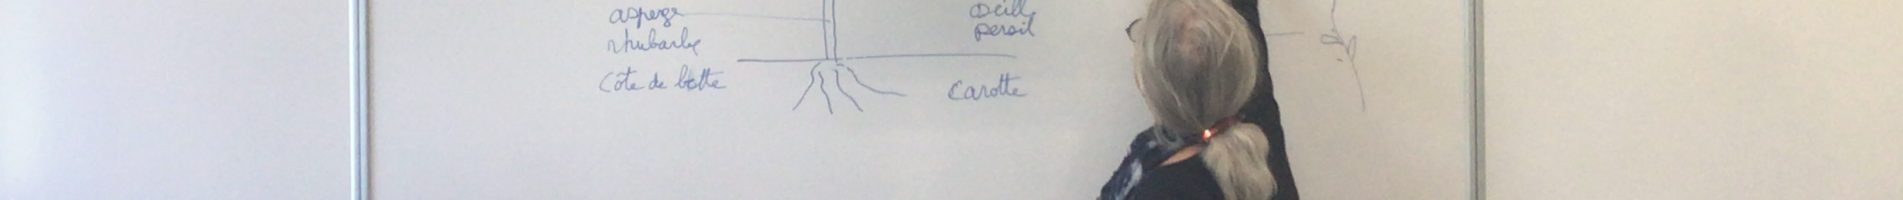 asperge
rhubarbe
Côte de blette
persil
Carotte